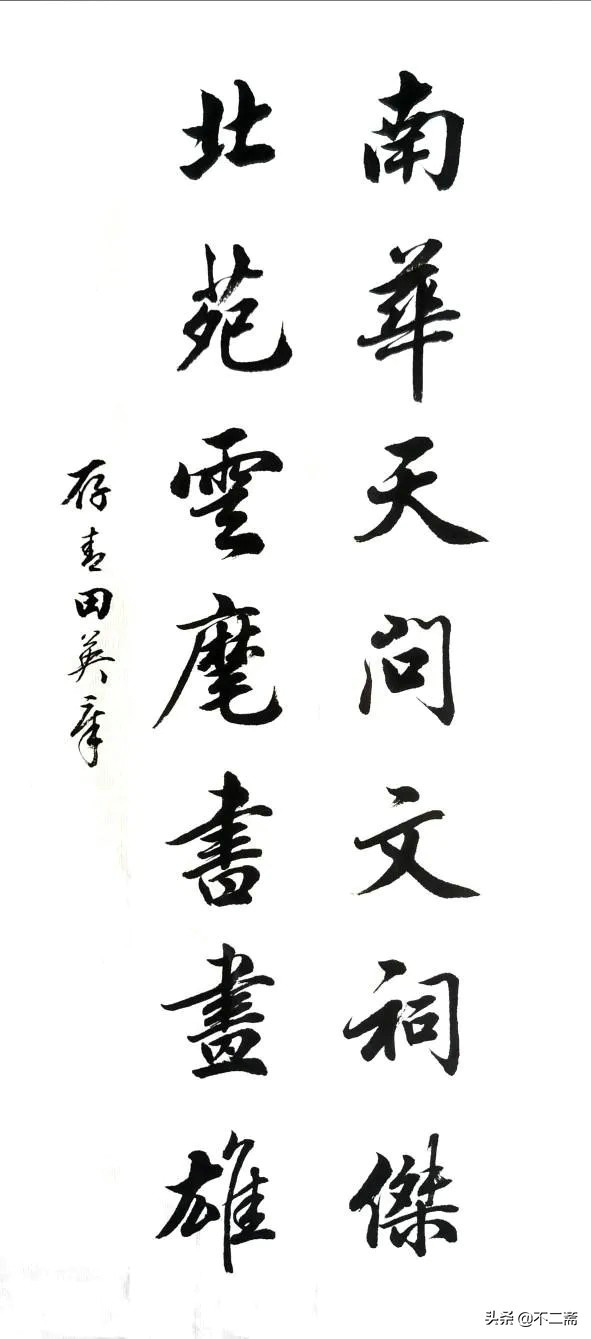 南華天问文祠傑
北苑雲麾書畫雄
存青田英章
头条 @不二斋